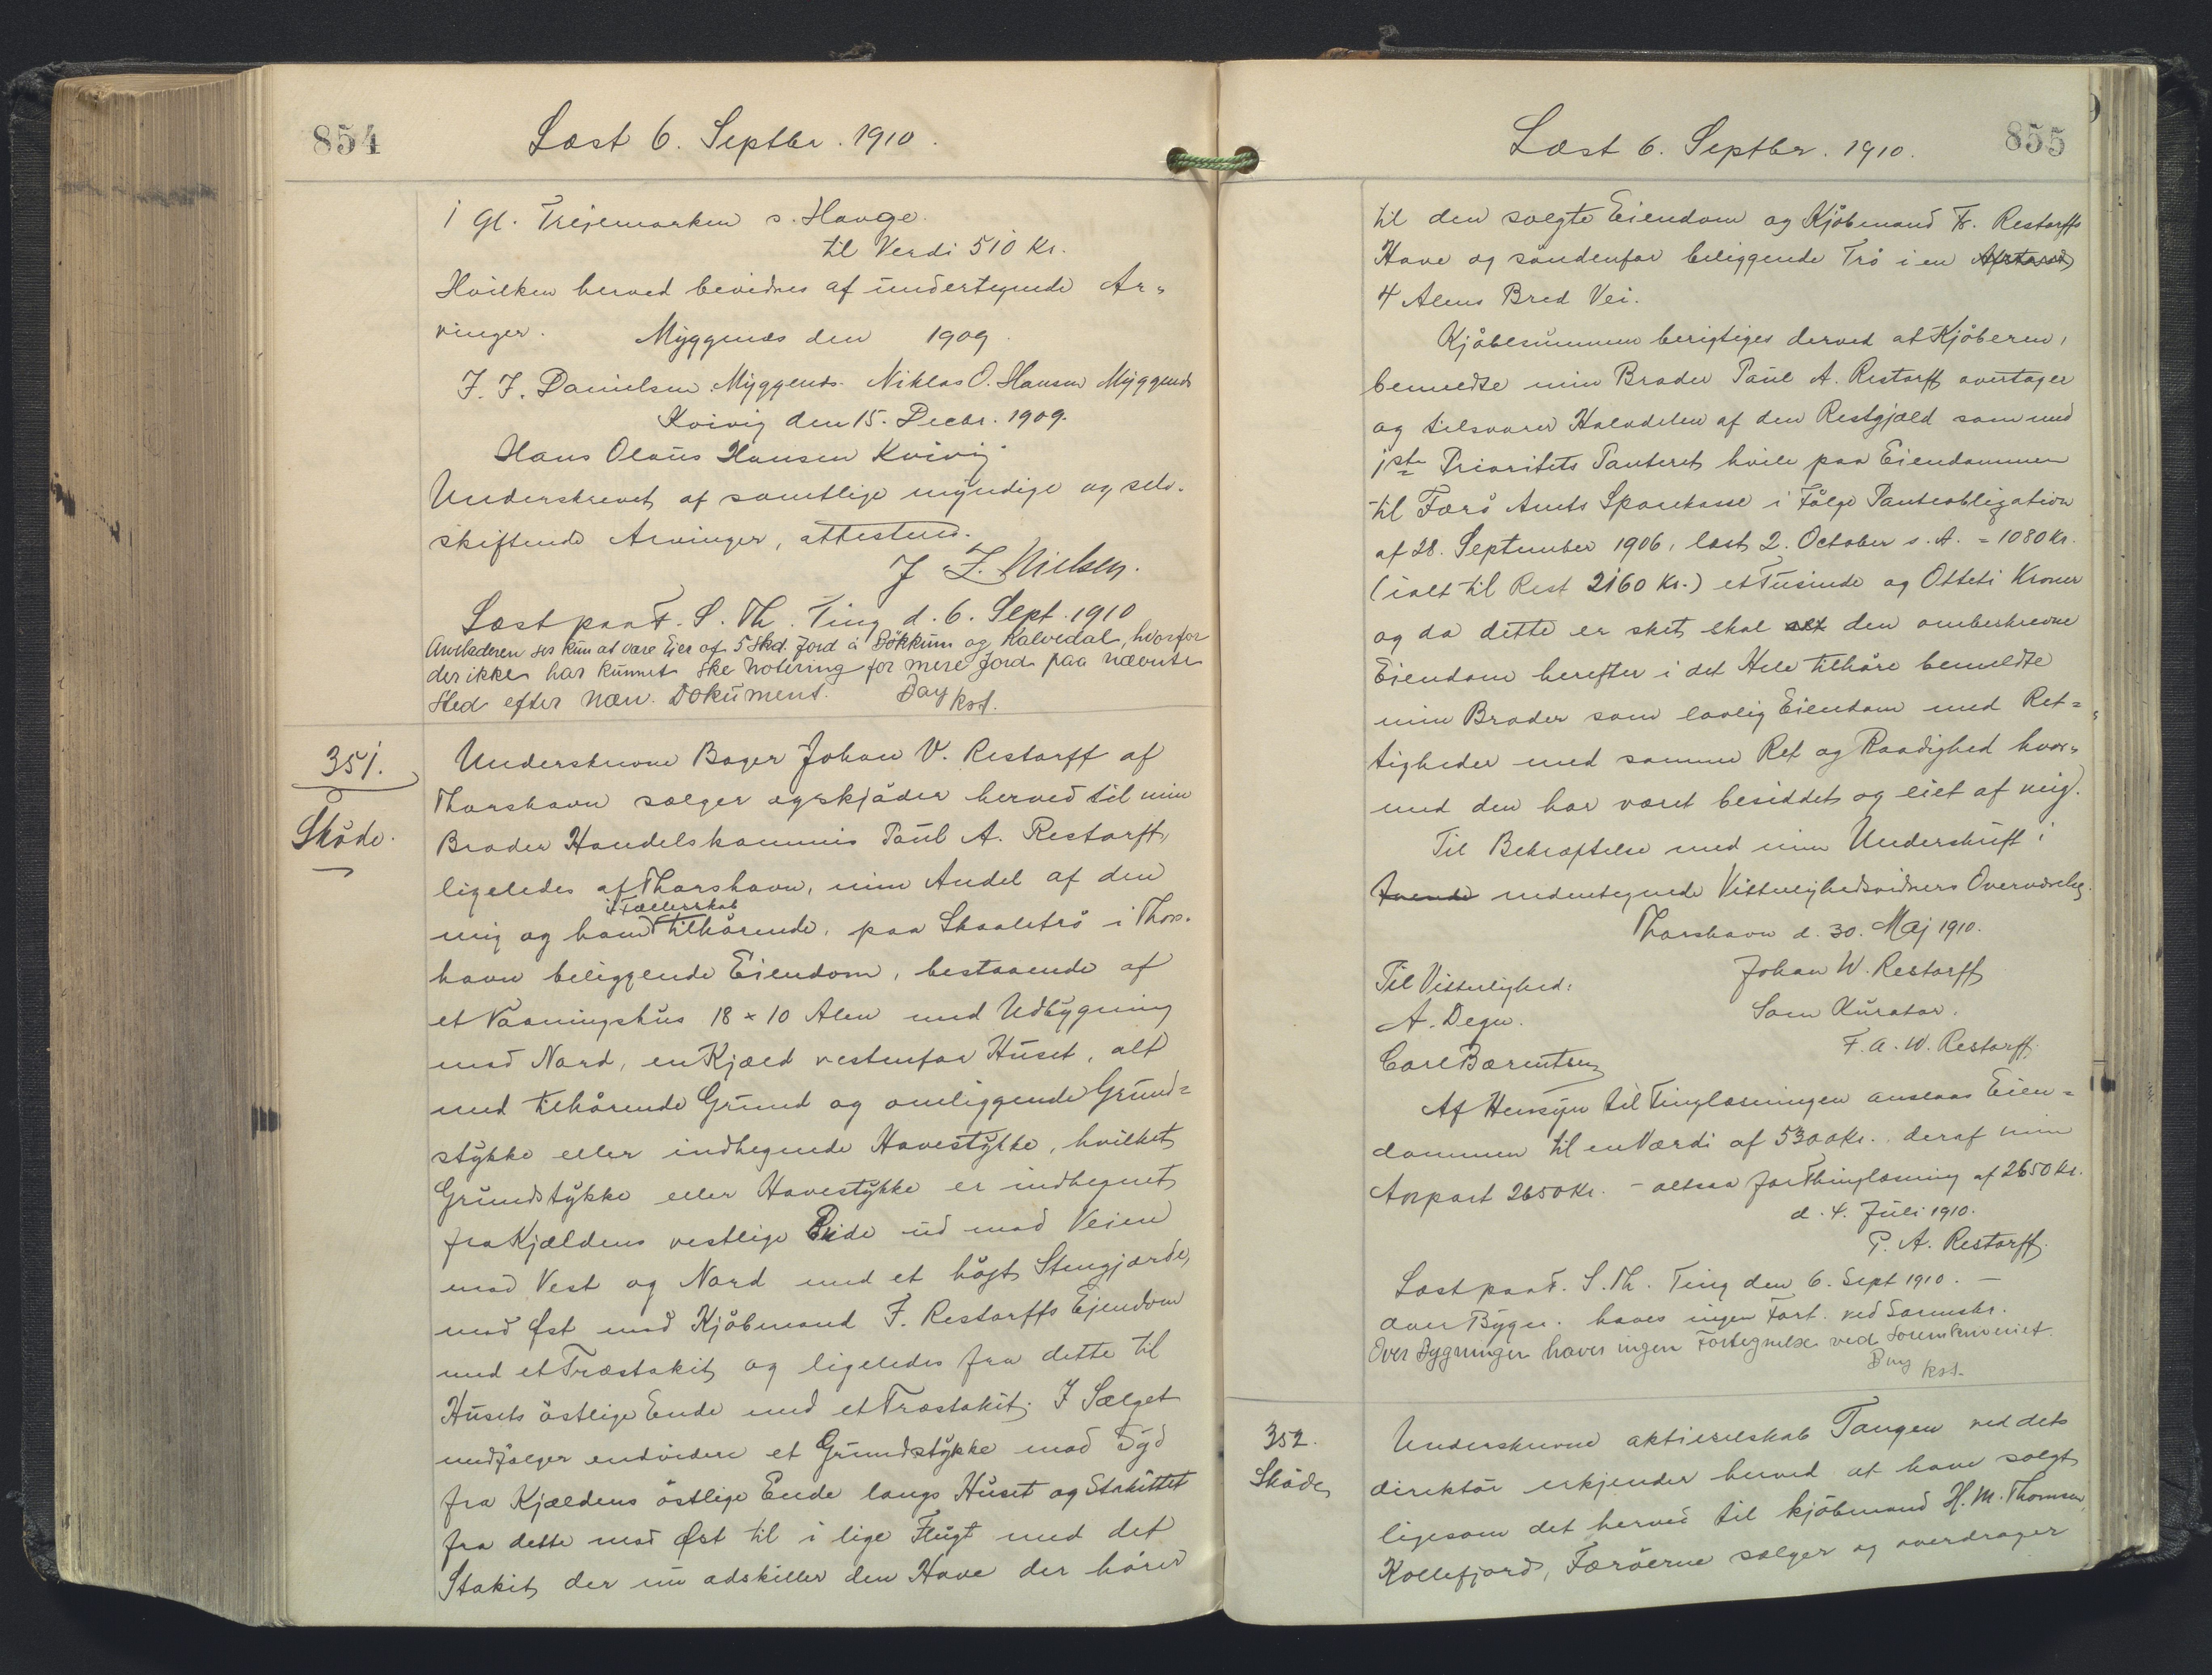 854
Læst 6. Septbr. 1910.
i Gl. Trøjemarken s. Hauge.
til Verdi 510 Kr.
Hvilken herved bevidnes af undertegnede Ar-
vinger.
Myggenæs den 1909.
J. J. Danielsen Myggenæs. Niklas O. Hansen Myggenæs
Kvivig den 15. Decbr. 1909.
Hans Olaus Hansen Kvivig
Underskrevet af samtlige myndige og selv-
skiftende Arvinger, attesteres.
J. Z. Nielsen.
Læst paa F. S. Th. Ting d. 6. Sept. 1910
Anvelsderen ses kun at være Ejer af 5 Skd. Jord á Bökkum og Kalvedal, hvorfor
der ikke har kunnet ske Notering for mere Jord paa nævnte
Sted efter nærv. Dokument. Bay kst.
351.
Skøde.
Underskrevne Bager Johan V. Restorff af
Thorshavn sælger og skjøder herved til min
Broder Handelskommis Paul A. Restorff,
ligeledes af Thorshavn, min Andel af den
i Fællesskab
mig og ham tilhørende, paa Skaaletrø i Thors-
havn beliggende Eiendom, bestaaende af
et Vaaningshus 18 x 10 Alen med Udbygning
mod Nord, en Kjæld vestenfor Huset, alt
med tilhørende Grund og omliggende Grund=
stykke eller indhegnede Havestykke, hvilket
Grundstykke eller Havestykke er indhegnet
fra Kjældens vestlige Ende ud mod Veien
mod Vest og Nord med et højt Stengjærde,
mod Øst mod Kjøbmand F. Restorffs Ejendom
med et Træstakit og ligeledes fra dette til
Husets østlige Ende med et Træstakit. I Salget
medfølger endvidere et Grundstykke mod Syd
fra Kjældens østlige Ende langs Huset og Stakittet
fra dette mod Øst til i lige Flugt med det
Stakit der nu adskiller den Have der hører
Læst 6. Septbr. 1910.
855
til den solgte Eiendom og Kjøbmand Fr. Restorffs
Have og søndenfor beliggende Trø i en Afstand
4 Alens Bred Vei.
Kjøbesummen berigtiges derved at Kjøberen,
bemeldte min Broder Paul A. Restorff overtager
og tilsvarer Halvdelen af den Restgjæld som med
1ste Prioritets Panteret hvile paa Eiendommen
til Færø Amts Sparekasse i Følge Panteobligation
af 28. September 1906, læst 2. October s. A. = 1080 Kr.
(ialt til Rest 2160 Kr.) et Tusinde og Otteti Kroner
og da dette er sket skal alt den ombeskrevne
Eiendom herefter i det Hele tilhøre bemeldte
min Broder som lovlig Eiendom med Ret=
tigheder med samme Ret og Raadighed hvor-
med den har været besiddet og eiet af mig.
Til Bekræftelse med min Underskrift i
tvende undertegnede Vitterlighedsvidners Overværelse.
Thorshavn d. 30. Maj 1910.
Til Vitterlighed:
Johan W. Restorff
A. Degn.
Som Kurator.
Carl Bærentsen
F. A. W. Restorff.
Af Hensyn til Tinglæsningen ansees Eien=
dommen til en Værdi af 5300 Kr. deraf min
Anpart 2650 Kr. - altsaa for Thinglæsning af 2650 Kr.
d. 4. Juli 1910.
P. A. Restorff.
Læst paa F. S. Th. Ting den 6. Sept 1910. -
Over Bygn. haves ingen Fort. ved Sorenskr.
Over Bygninger haves ingen Fortegnelse ved Sorenskriveriet.
Bay kst.
352.
Skøde
Underskrevne aktieselskab Tangen ved dets
direktør erkjender herved at have solgt
ligesom det herved til kjøbmand H. M. Thomsen,
Kollefjord, Færøerne sælger og overdrager